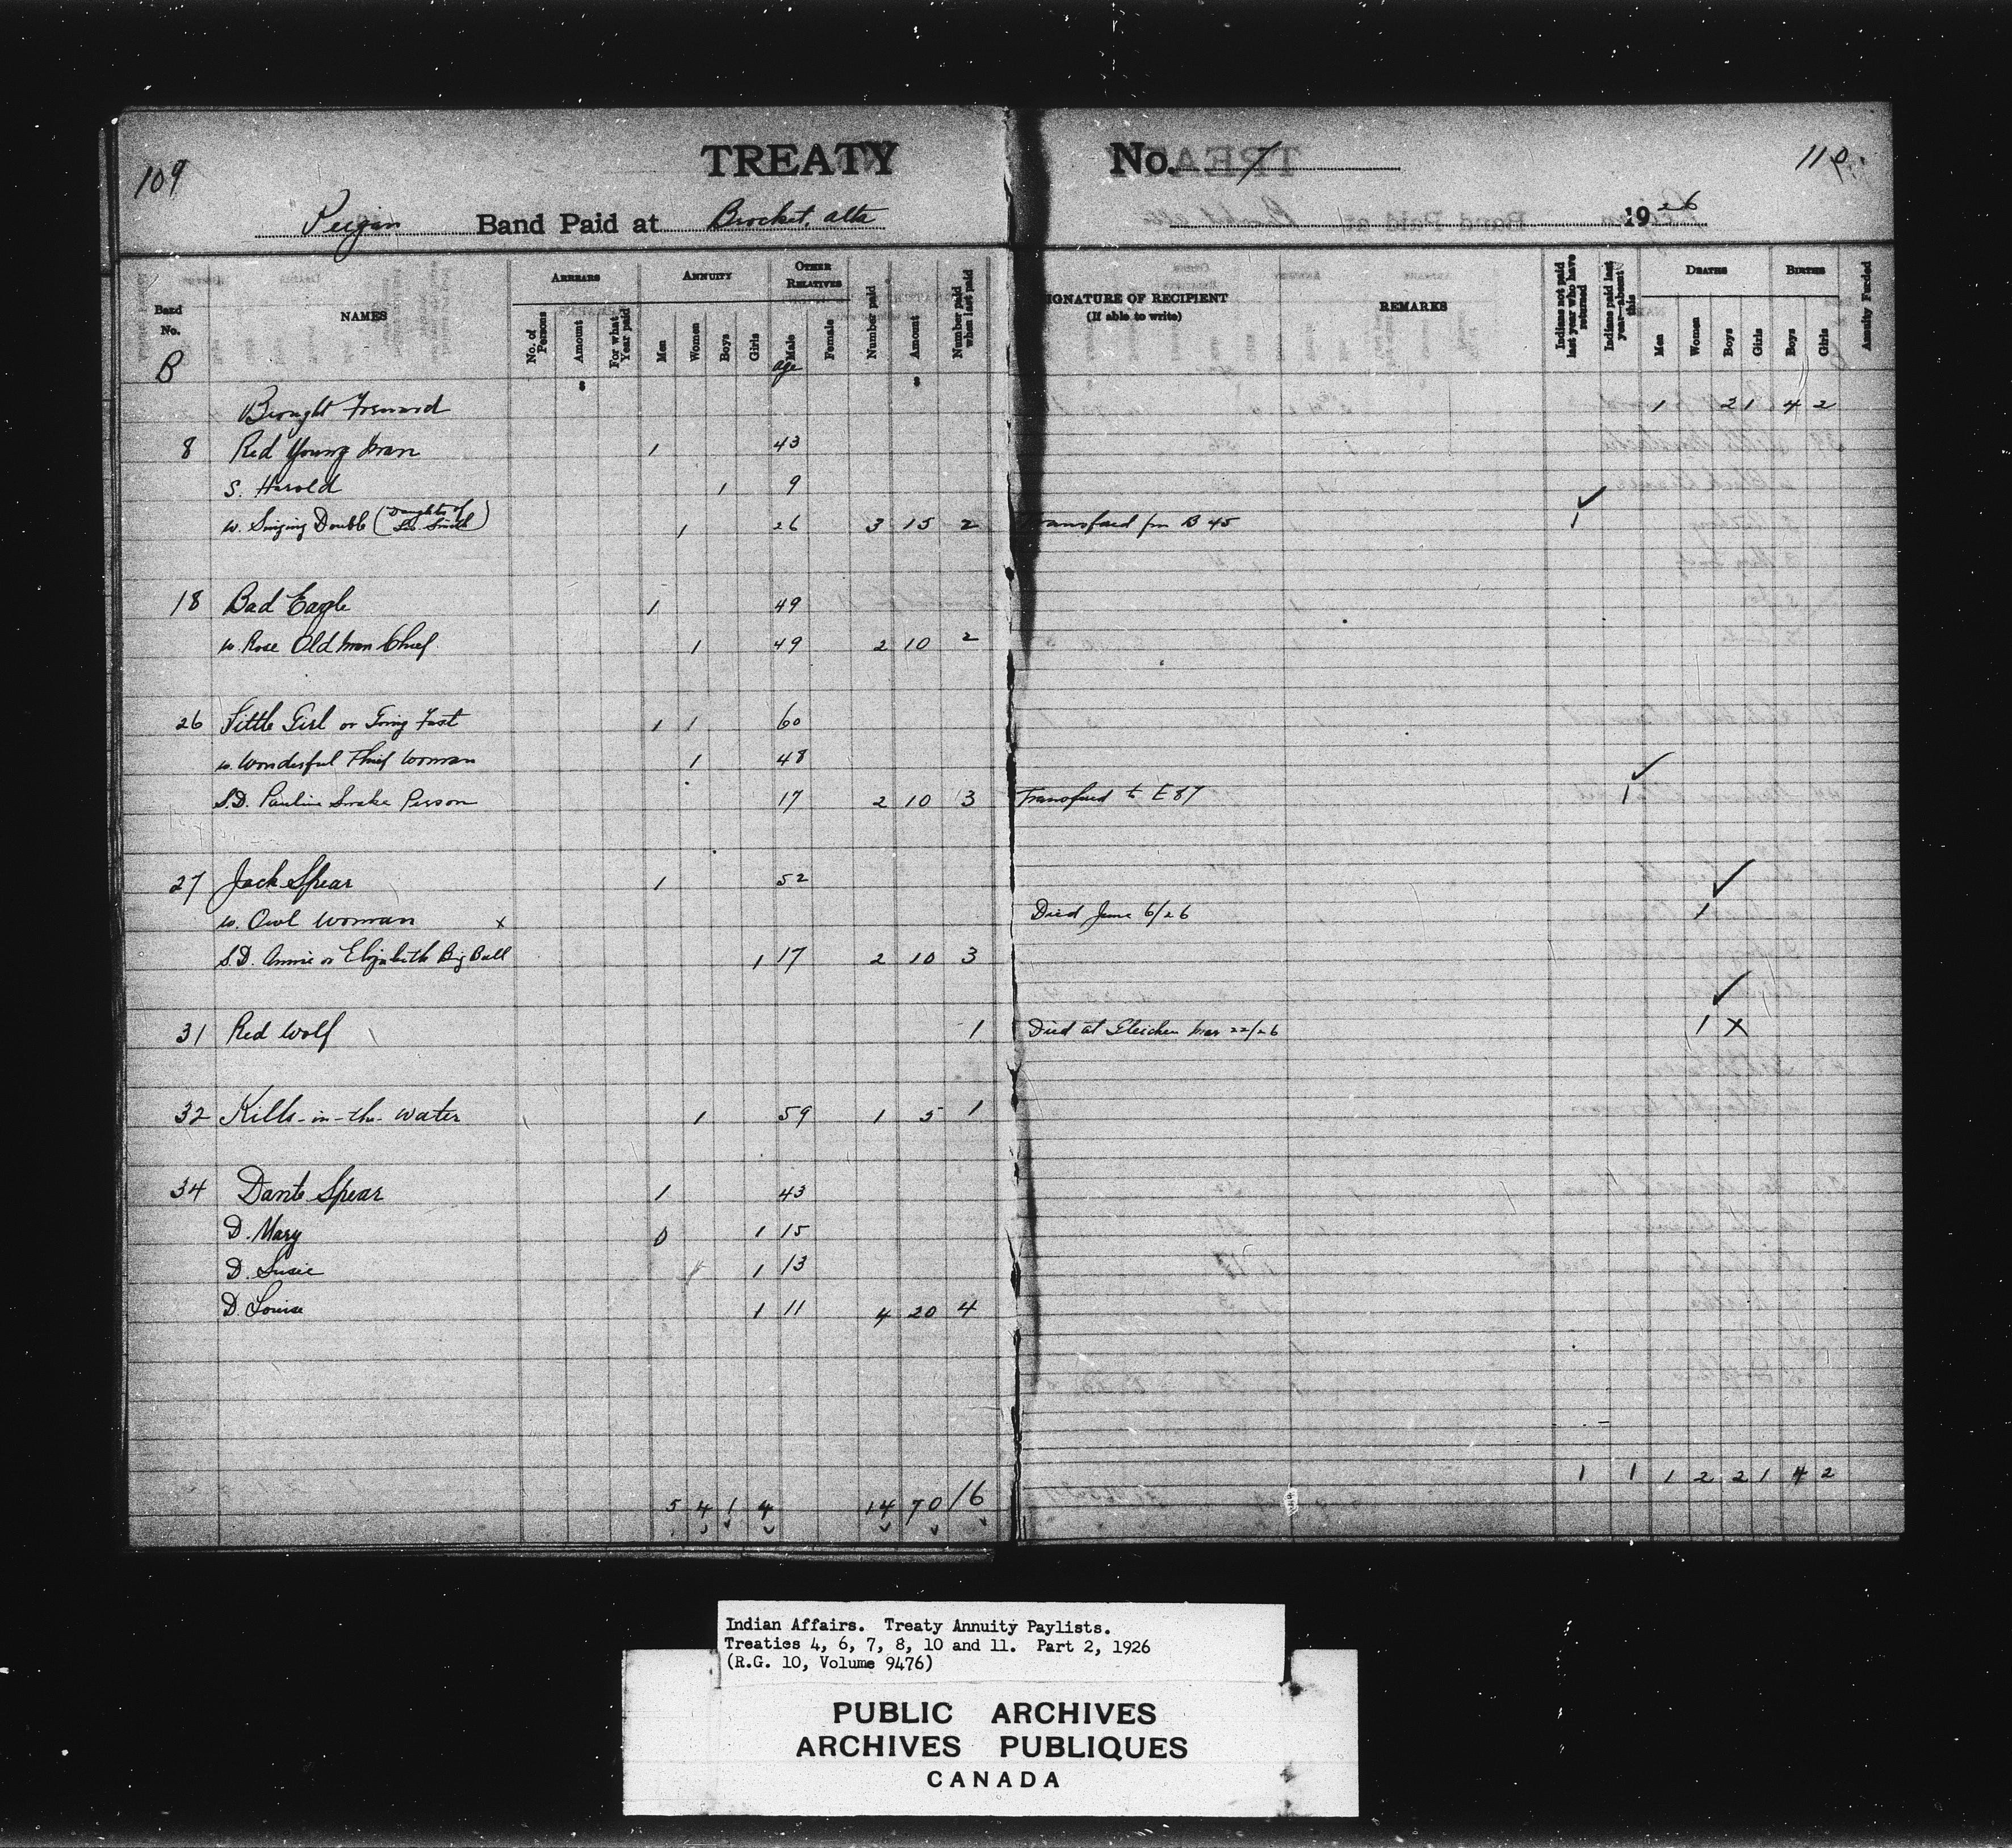 109
TREATY No. 7
110
Peigan Band Paid at Brocket, Alta 1926
Band No. NAMES ARREARS No. of Persons Amount For what Year paid ANNUITY Men Women Boys Girls OTHER RELATIVES Male Female Number paid Amount Number paid when last paid SIGNATURE OF RECIPIENT (If able to write) REMARKS Indians not paid last year who have returned Indians paid last year—absent this DEATHS Men Women Boys Girls BIRTHS Boys Girls Annuity Funded
B age $ $
Brought Forward 1 2 1 4 2
8 Red Young Man 1 43
S. Harold 1 9
w. Singing Double (Daughter of Smith) 1 26 3 15 2 Transfered fm B 45 1
18 Bad Eagle 1 49
w. Rose Old Man Chief 1 49 2 10 2
26 Little Girl or Going Fast 1 1 60
w. Wonderful Thief Woman 1 48
S.D. Pauline Smoke Person 17 2 10 3 Transfered to E 87 1
27 Jack Spear 1 52
w. Owl Woman x Died June 6/26 1
S.D. Annie or Elizabeth Big Bull 1 17 2 10 3
31 Red Wolf 1 Died at Gleichen Mar 22/26 1 x
32 Kills-in-the-Water 1 59 1 5 1
34 Dante Spear 1 43
D. Mary 0 1 15
D. Susie 1 13
D. Louise 1 11 4 20 4
1 1 1 2 2 1 4 2
5 4 1 4 14 70 16
Indian Affairs. Treaty Annuity Paylists.
Treaties 4, 6, 7, 8, 10 and 11. Part 2, 1926
(R.G. 10, Volume 9476)
PUBLIC ARCHIVES
ARCHIVES PUBLIQUES
CANADA